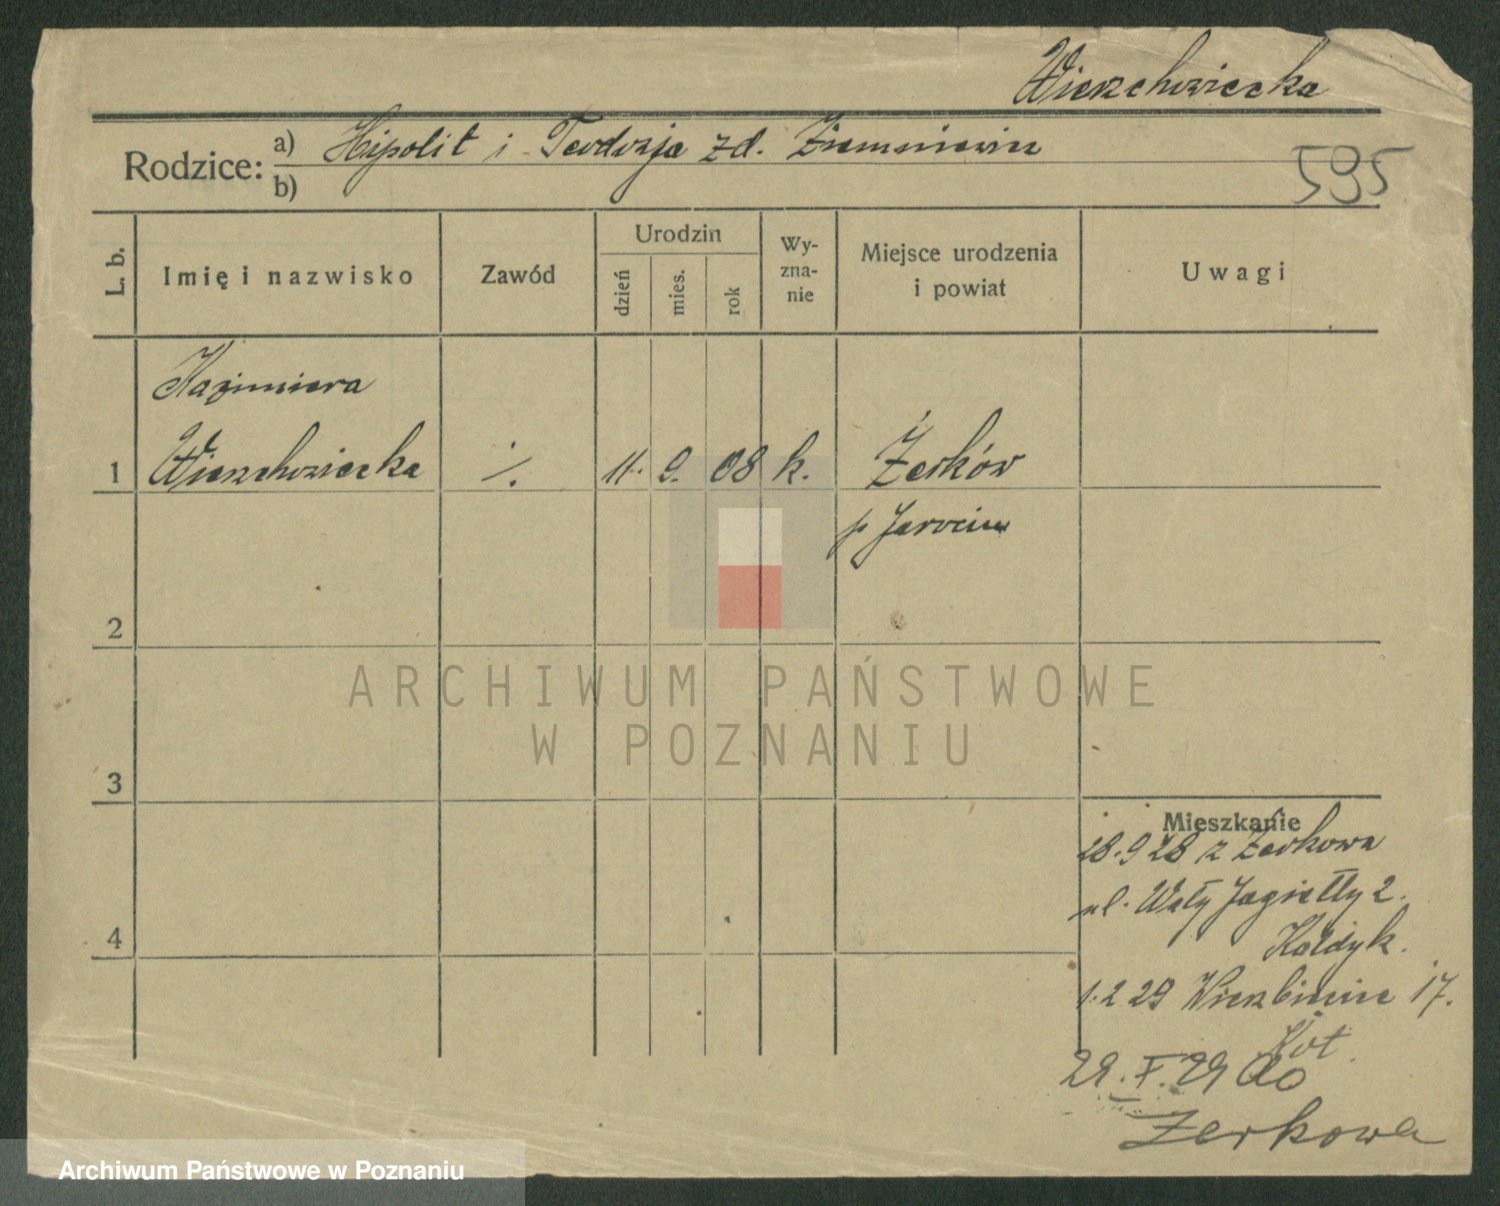 Wierzchowiecka
Rodzice: a) Hipolit i Teodozja zd. Ziemniewicz
b)
595
L. b.
Imię i nazwisko
Zawód
Urodzin
dzień
mies.
rok
Wy-
zna-
nie
Miejsce urodzenia
i powiat
Uwagi
Kazimiera
1 Wierzchowiecka ·/. 11. 9. 08 k. Żerków
p Jarocin
2
3
4
Mieszkanie
28.9 28 z Żerkowa
ul. Wały Jagiełły 2.
1.2 29 Wierzbięcice 17.
Kot
29. V. 29 do
Żerkowa
ARCHIWUM PAŃSTWOWE
W POZNANIU
Archiwum Państwowe w Poznaniu